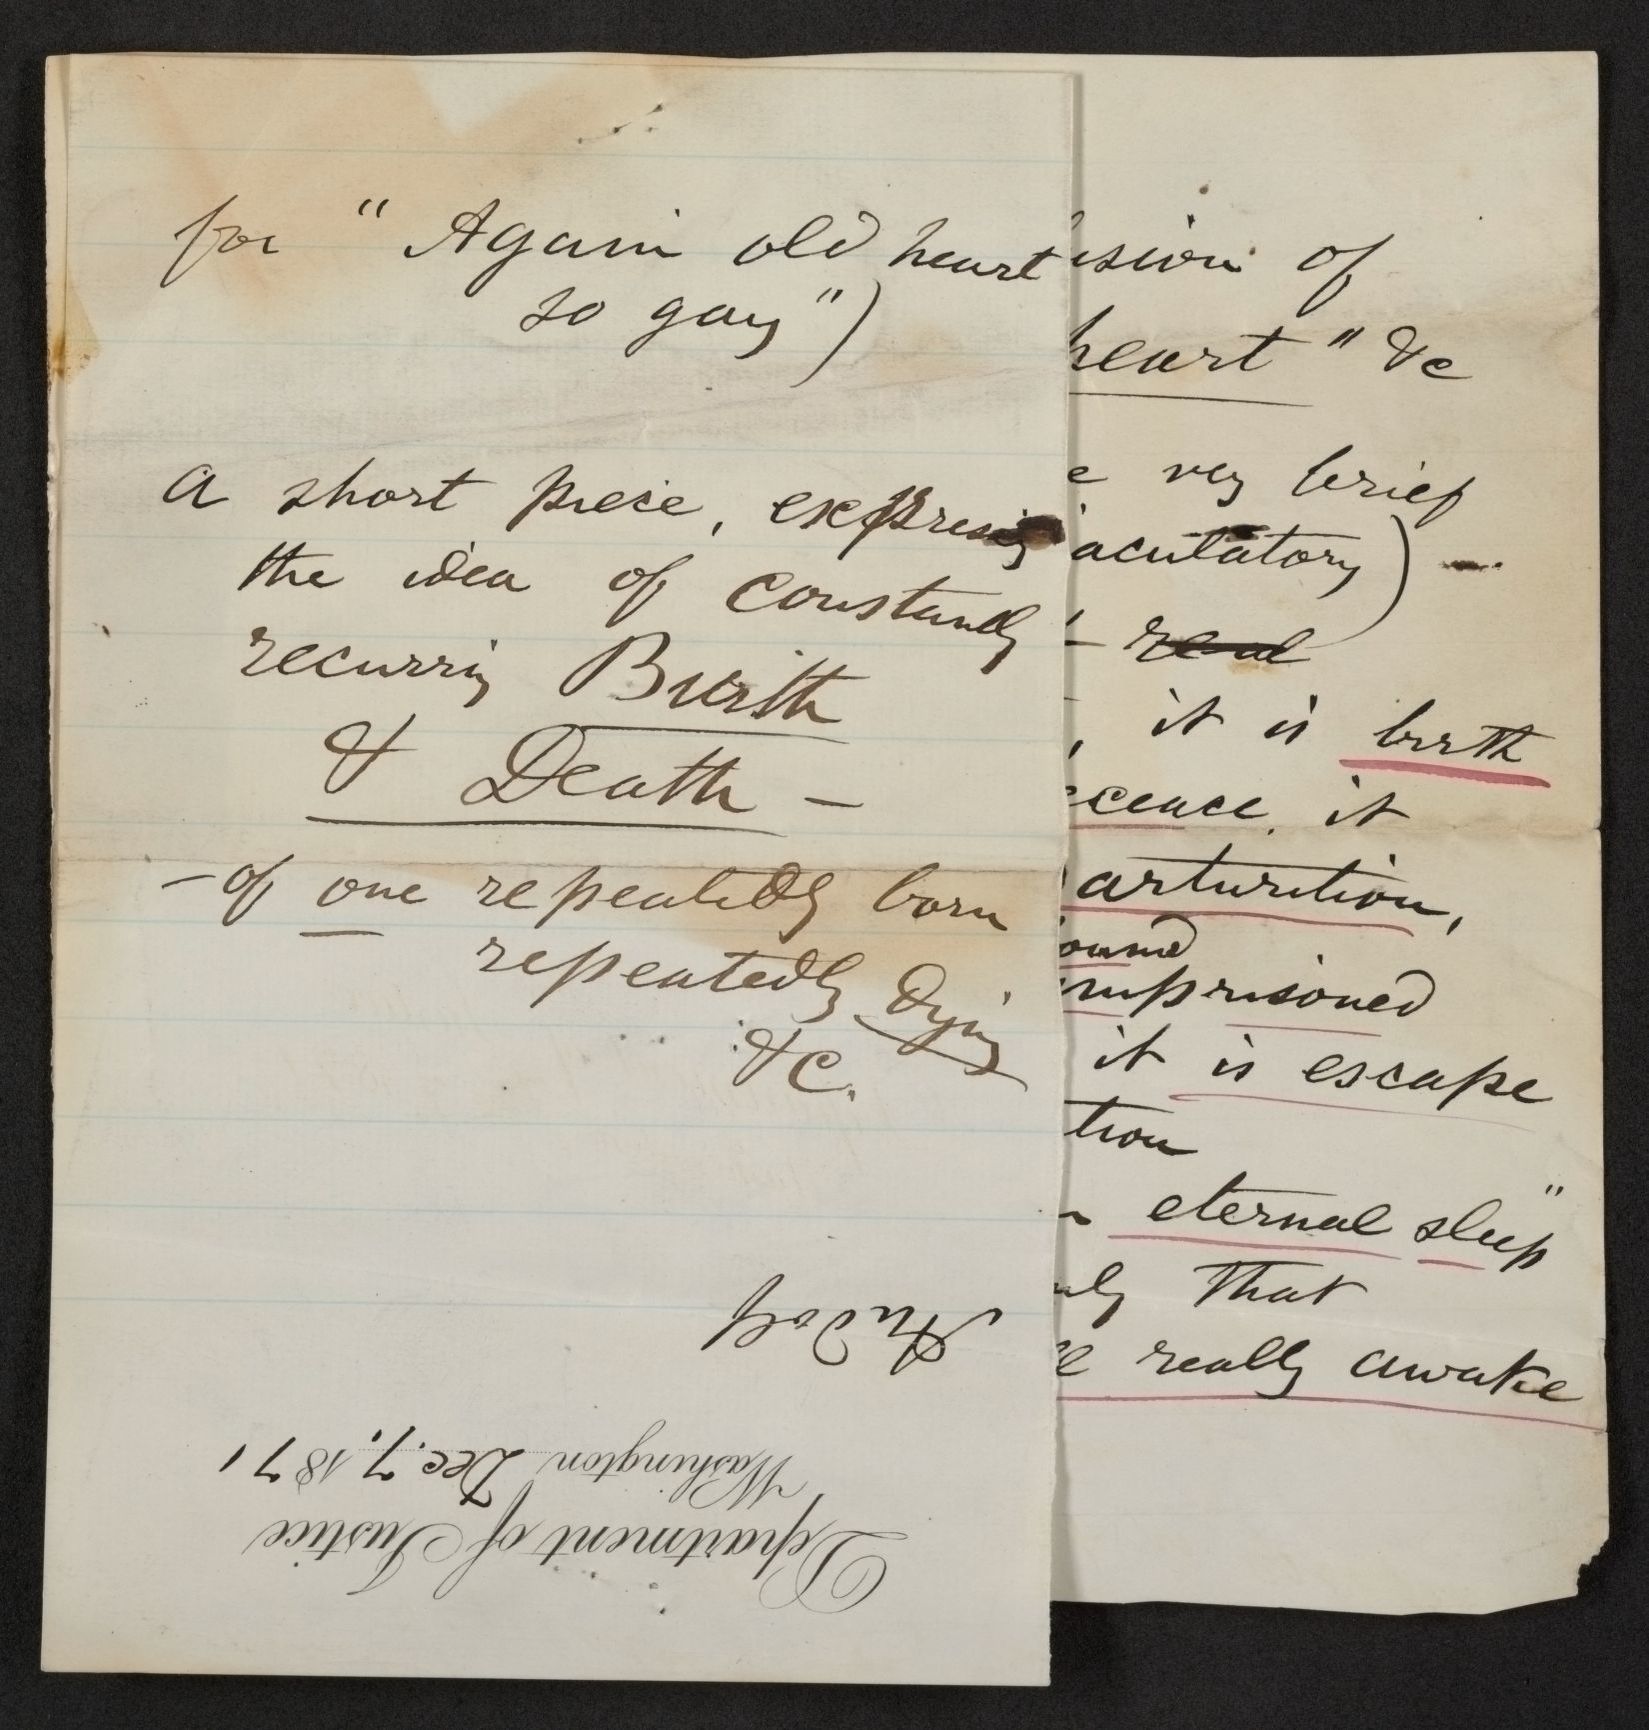 for " Again old heart
so gay")
a short piece, expressing
the idea of constantly
recurring Birth
& Death —
— of one repeatedly born
repeatedly dying
&c.
Department of Justice
Washington Dec. 7, 1871
ision of
heart" &c
e very brief
aculatory) —
— real
, it is birth
cence, it
arturition,
ound
mprisoned
it is escape
tion
eternal sleep"
ly that
e really awake